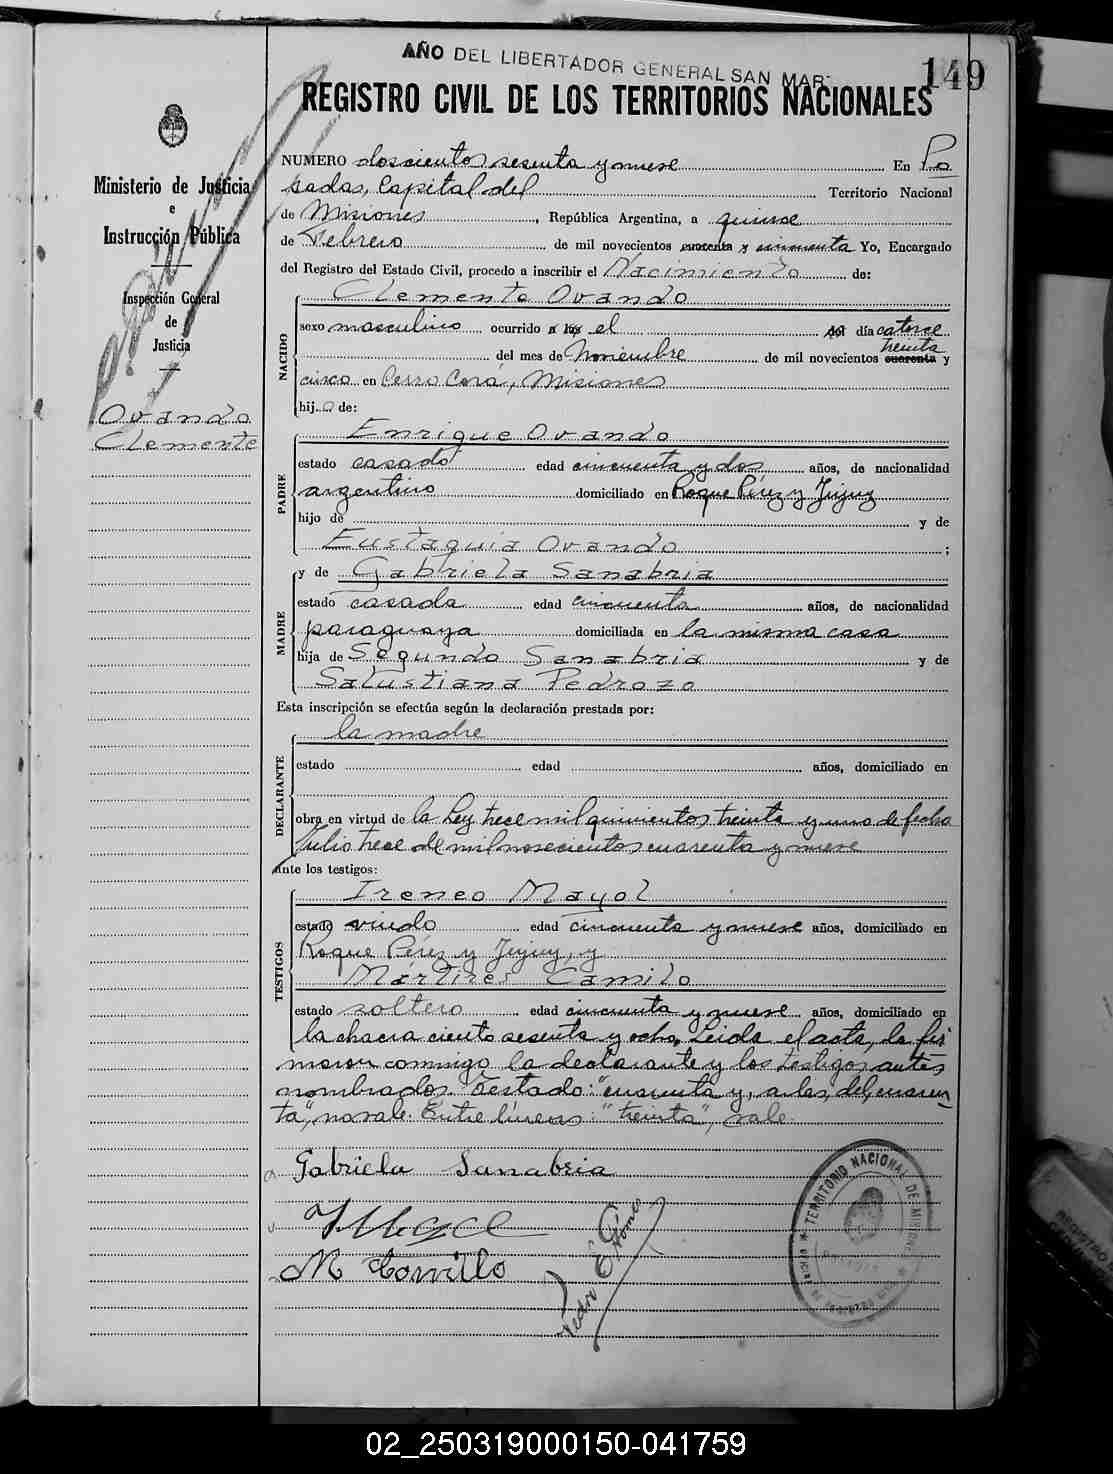 AÑO DEL LIBERTADOR GENERAL SAN MAR
149
REGISTRO CIVIL DE LOS TERRITORIOS NACIONALES
Ministerio de Justicia
e
Instrucción Pública
Inspección General
de
Justicia
Ovando
Clemente
NUMERO doscientos sesenta y nueve En Po
sadas, Capital del Territorio Nacional
de Misiones, República Argentina, a quince
de Febrero de mil novecientos cuarenta y cincuenta Yo, Encargado
del Registro del Estado Civil, procedo a inscribir el Nacimiento de:
NACIDO
Clemente Ovando
sexo masculino ocurrido a las el del día catorce
del mes de Noviembre de mil novecientos cuarenta treinta y
cinco en Cerro Corá, Misiones
hijo de:
PADRE
Enrique Ovando
estado casado edad cincuenta y dos años, de nacionalidad
argentino domiciliado en Roque Pérez y Jujuy
hijo de y de
Eustaquia Ovando ;
MADRE
y de Gabriela Sanabria
estado casada edad cincuenta años, de nacionalidad
paraguaya domiciliada en la misma casa
hija de Segundo Sanabria y de
Salustiana Pedrozo
Esta inscripción se efectúa según la declaración prestada por:
DECLARANTE
la madre
estado edad años, domiciliado en
obra en virtud de la Ley trece mil quinientos treinta y uno de fecha
Julio trece de mil novecientos cuarenta y nueve
ante los testigos:
TESTIGOS
Ireneo Mayol
estado viudo edad cincuenta y nueve años, domiciliado en
Roque Pérez y Jujuy, y
Mártires Camilo
estado soltero edad cincuenta y nueve años, domiciliado en
la chacra ciento sesenta y ocho. Leida el acta, la fir
maron conmigo la declarante y los testigos antes
nombrados. Testado: "cuarenta y, a las, del, cuaren
ta", no vale. Entre líneas: "treinta", vale.
Gabriela Sanabria
Pedro E Gómez
TERRITORIO NACIONAL DE MISIONES
02_250319000150-041759